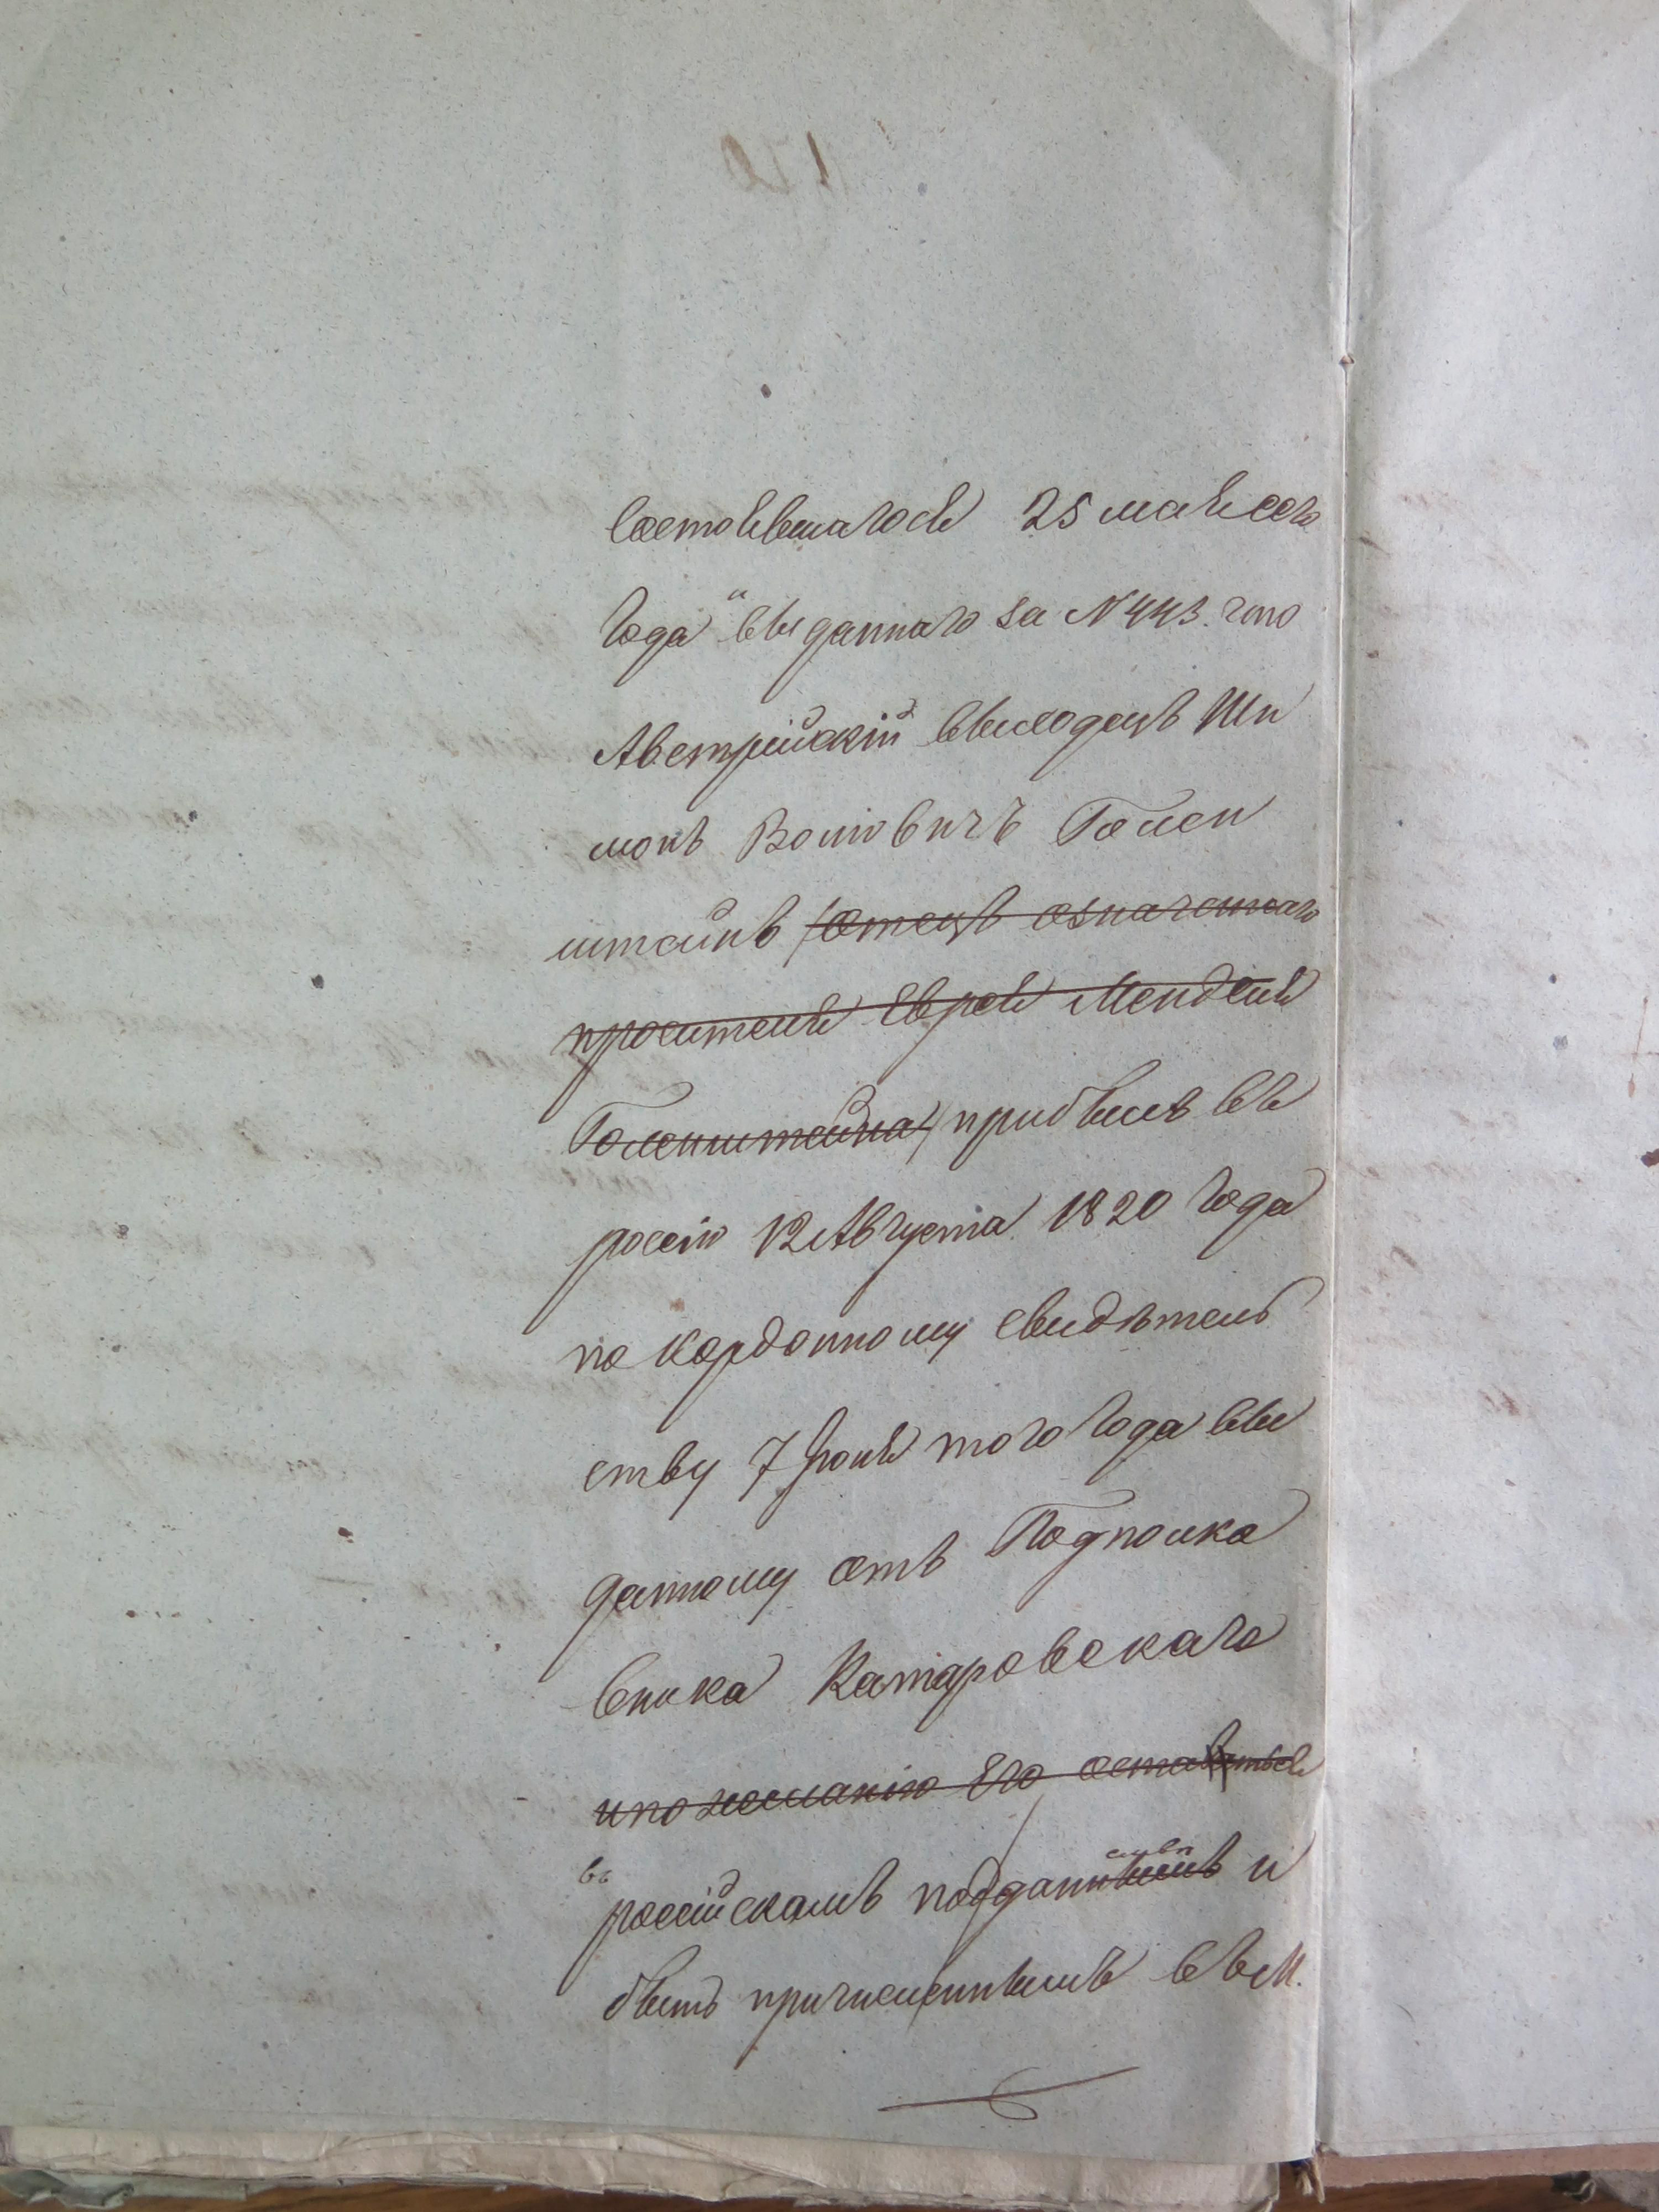 состоявшагося 25 мая сего
года" выданнаго за N 443. что
Австрійскій выходецъ Ши
монъ Волтовичъ Голен
штейнъ (отецъ означеннаго
просителя Еврея Менделя
Голенштейна) прибылъ въ
россію 12 Августа 1820 года
по кордонному свидѣтель
ству 7 Іюня того года вы
данному отъ Подполко
вника Катаровскаго
и по желанію Его оставаться
въ
россійскомъ подданнымъ и
быть причисленнымъ въ М.